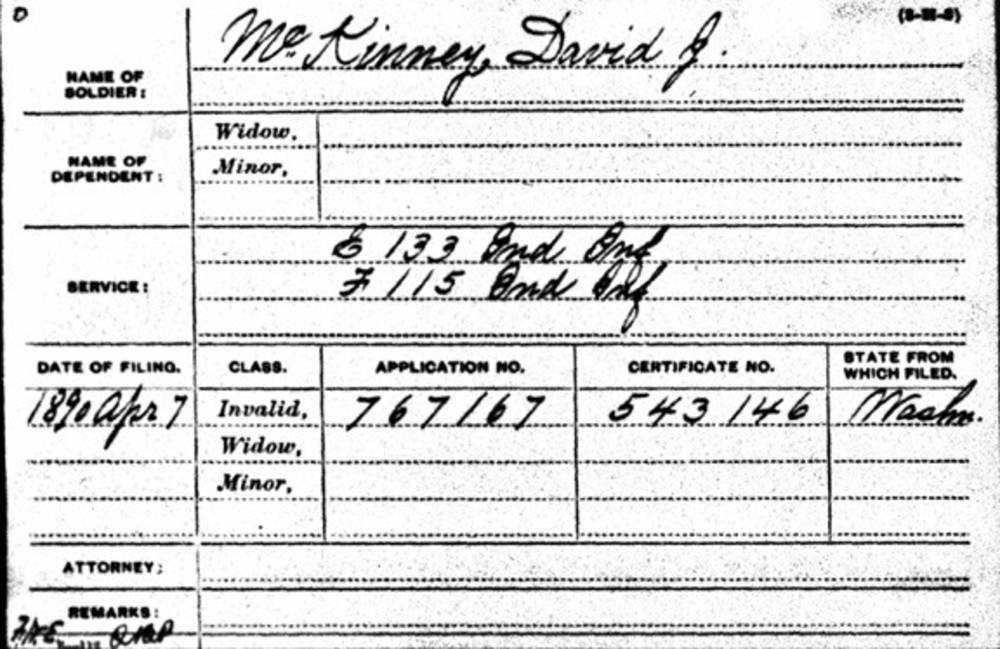 McKinney, David J.
NAME OF
SOLDIER:
NAME OF
DEPENDENT:
Widow,
Minor,
SERVICE:
E 133 Ind Inf
F 115 Ind Inf
DATE OF FILING. CLASS. APPLICATION NO. CERTIFICATE NO. STATE FROM WHICH FILED.
1890 Apr 7 Invalid, 767167 543146 Washn.
Widow,
Minor,
ATTORNEY:
REMARKS: